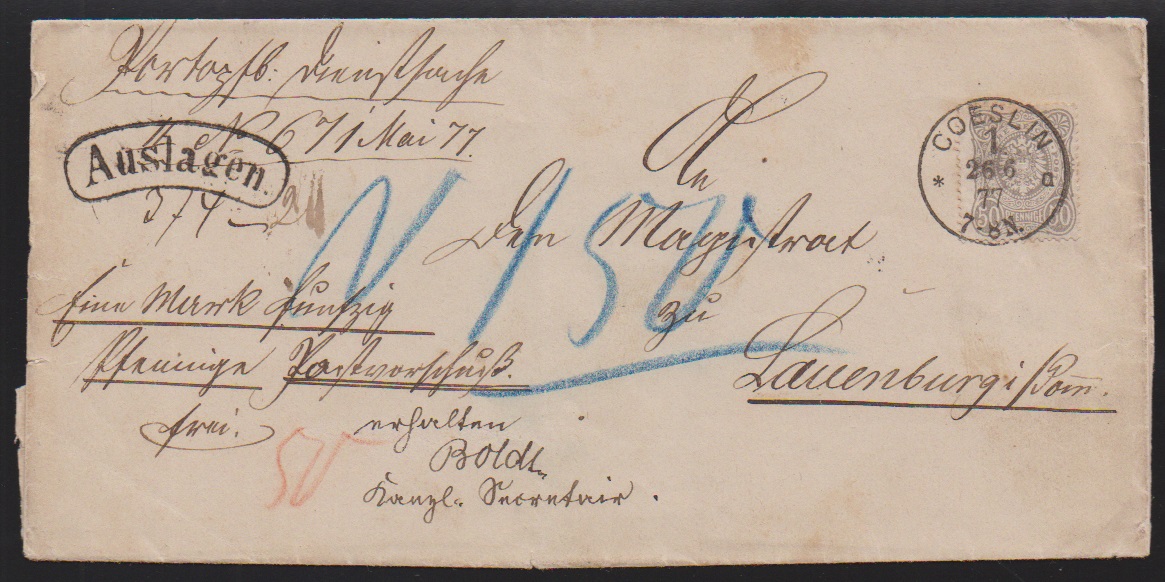 Portopfl: Dienstsache
671 Mai 77.
Auslagen.
An
den Magistrat
zu
Lauenburg i/Pom.
COESLIN
1
26 6
77
7-8N.
* a
50 PFENNIGE 50
150
Eine Mark funfzig
Pfennige Postvorschuß.
frei.
50
erhalten
Boldt
Kanzl. Secretair.